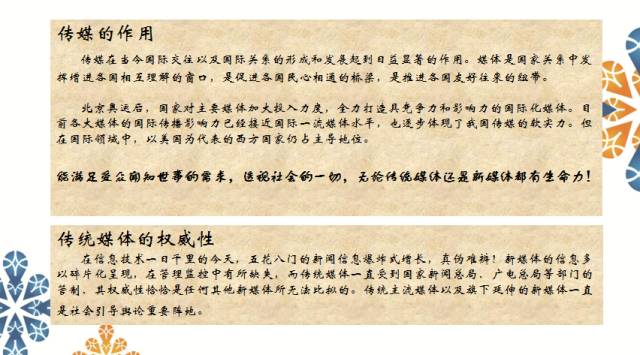 传媒的作用
传媒在当今国际交往以及国际关系的形成和发展起到日益显著的作用。媒体是国家关系中发
挥增进各国相互理解的窗口，是促进各国民心相通的桥梁，是推进各国友好往来的纽带。
北京奥运后，国家对主要媒体加大投入力度，全力打造具竞争力和影响力的国际化媒体。目
前各大媒体的国际传播影响力已经接近国际一流媒体水平，也逐步体现了我国传媒的软实力。但
在国际领域中，以美国为代表的西方国家仍占主导地位。
能满足受众阅知世事的需求，透视社会的一切，无论传统媒体还是新媒体都有生命力！
传统媒体的权威性
在信息技术一日千里的今天，五花八门的新闻信息爆炸式增长，真伪难辨！新媒体的信息多
以碎片化呈现，在管理监控中有所缺失，而传统媒体一直受到国家新闻总局、广电总局等部门的
管制，其权威性恰恰是任何其他新媒体所无法比拟的。传统主流媒体以及旗下延伸的新媒体一直
是社会引导舆论重要阵地。